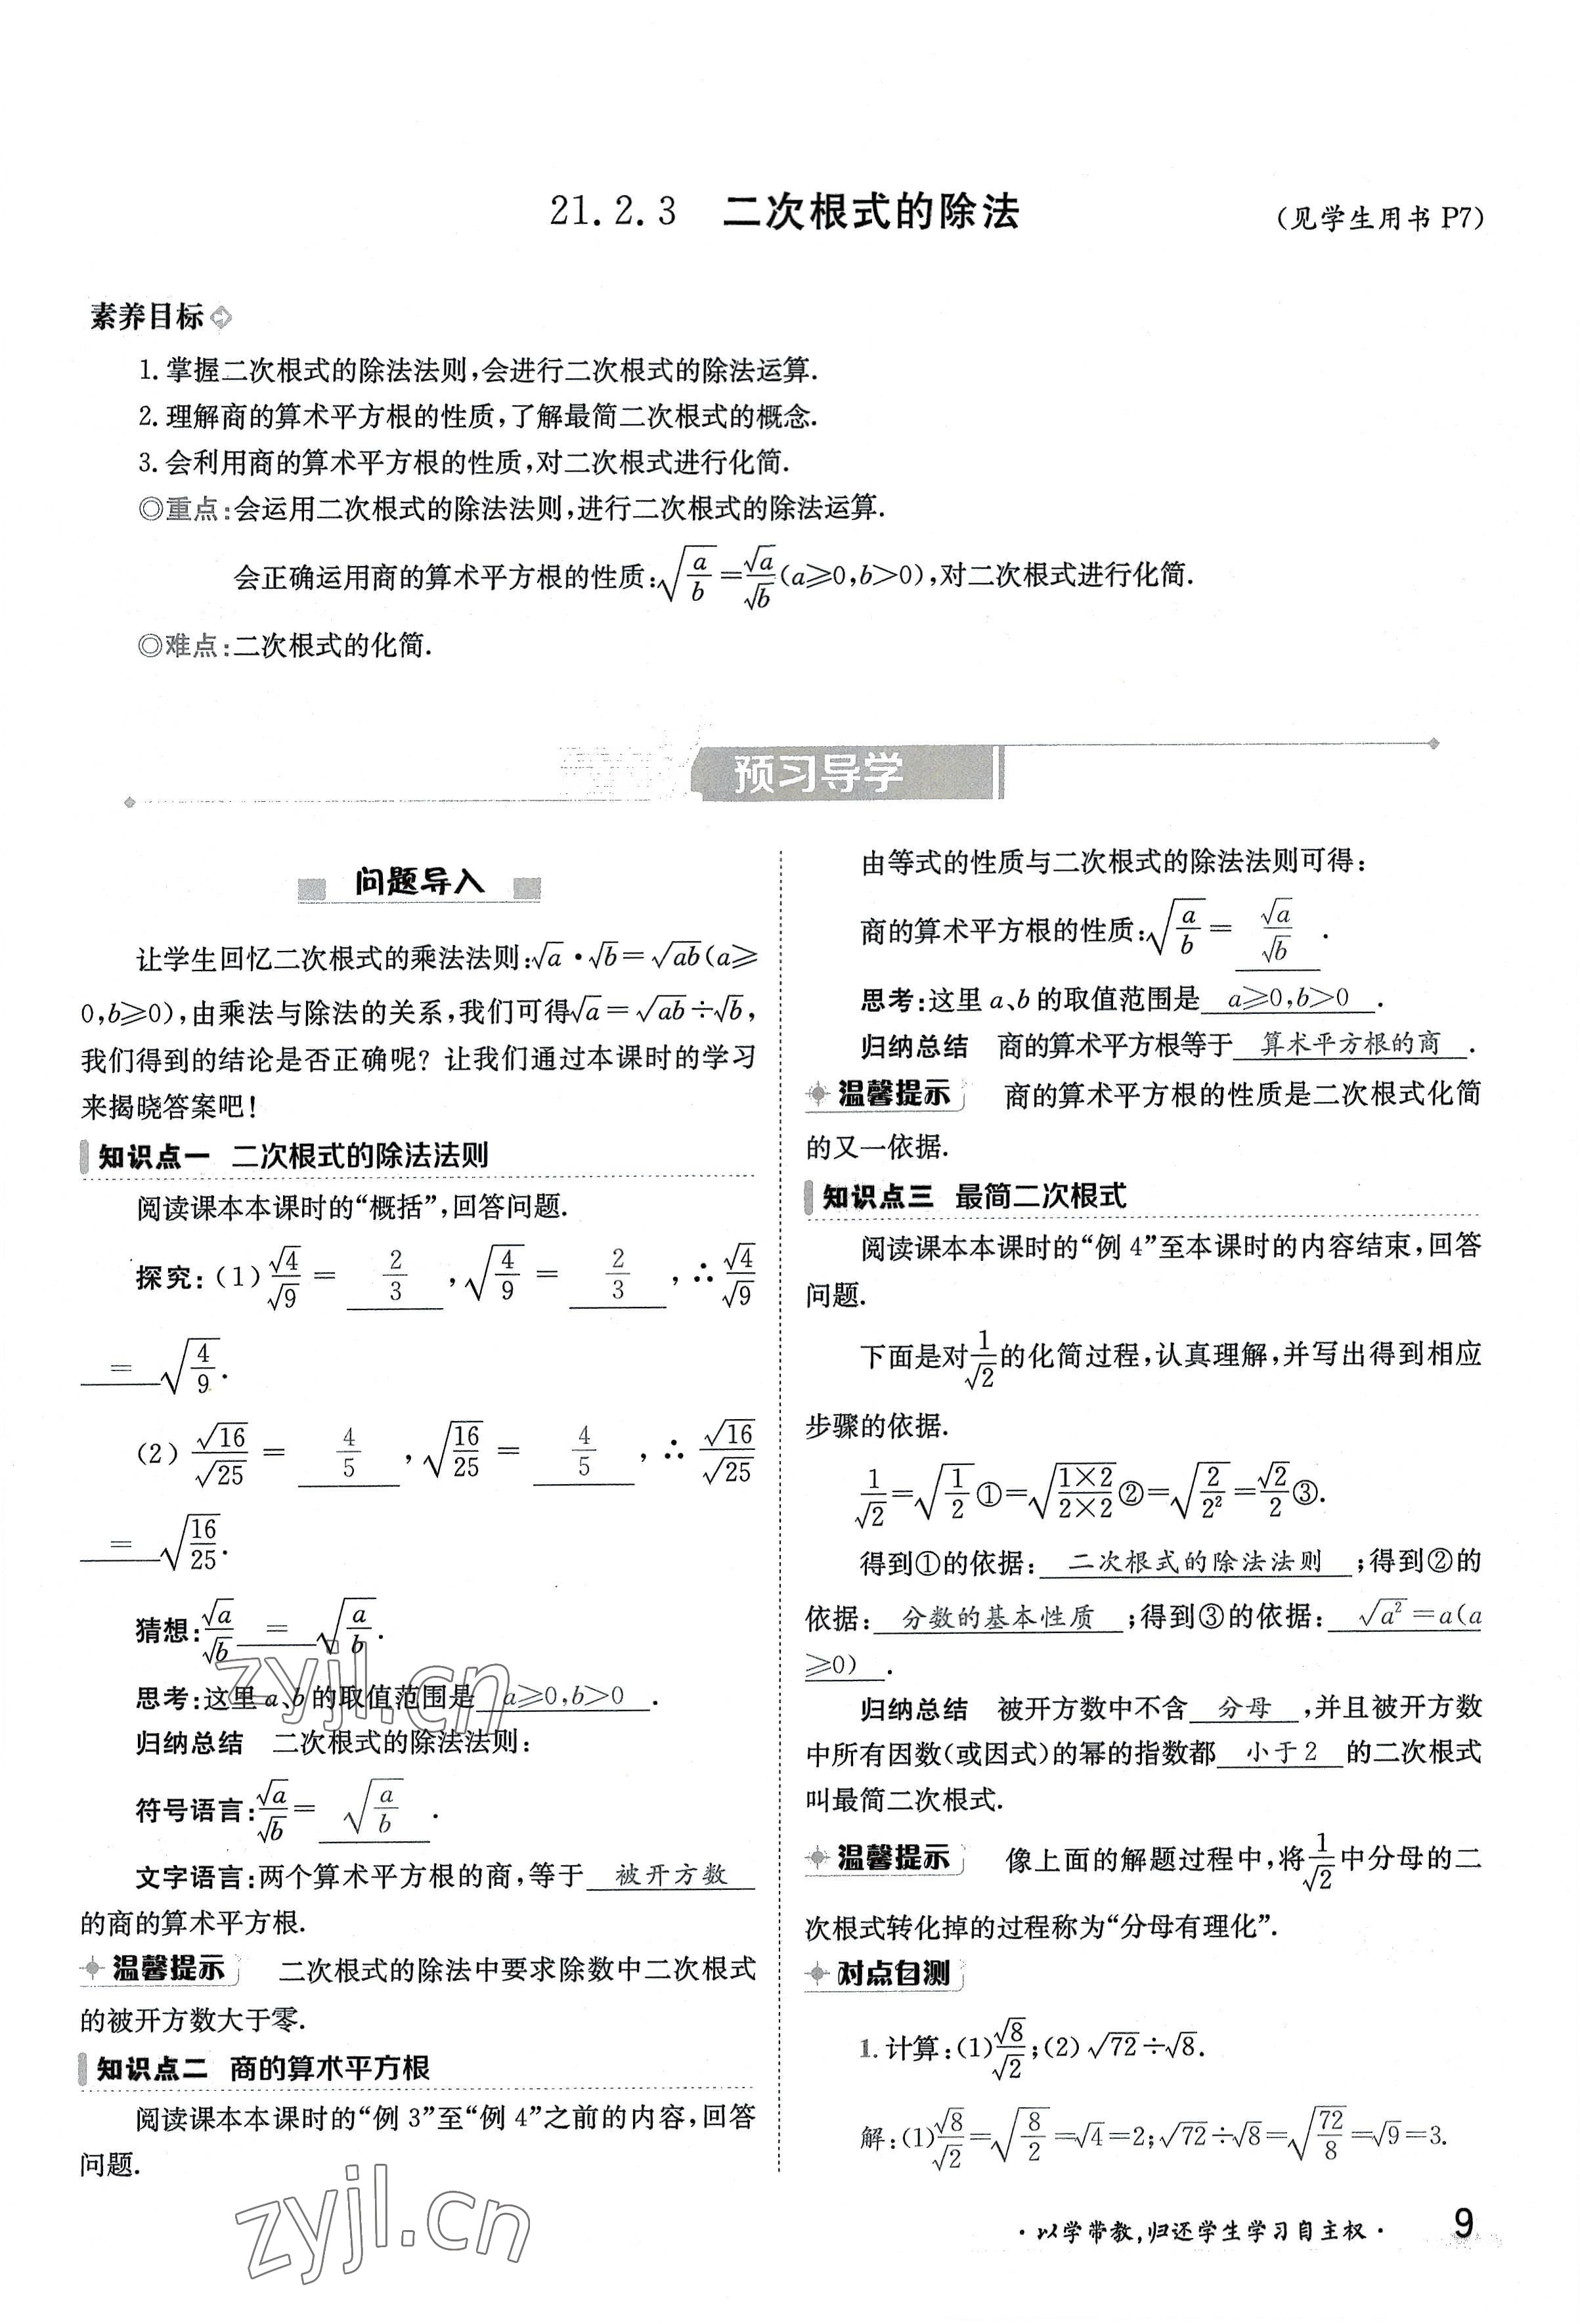 21.2.3 二次根式的除法 (见学生用书 P7)
素养目标
1. 掌握二次根式的除法法则,会进行二次根式的除法运算.
2. 理解商的算术平方根的性质,了解最简二次根式的概念.
3. 会利用商的算术平方根的性质,对二次根式进行化简.
◎重点:会运用二次根式的除法法则,进行二次根式的除法运算.
会正确运用商的算术平方根的性质:√(a/b)=√a/√b(a≥0,b>0),对二次根式进行化简.
◎难点:二次根式的化简.
预习导学
问题导入
让学生回忆二次根式的乘法法则:√a·√b=√ab(a≥
0,b≥0),由乘法与除法的关系,我们可得√a=√ab÷√b,
我们得到的结论是否正确呢?让我们通过本课时的学习
来揭晓答案吧!
知识点一 二次根式的除法法则
阅读课本本课时的“概括”,回答问题.
探究:(1)√4/√9= 2/3 ,√(4/9)= 2/3 ,∴√4/√9
= √(4/9).
(2)√16/√25= 4/5 ,√(16/25)= 4/5 ,∴√16/√25
= √(16/25).
猜想:√a/√b = √(a/b).
思考:这里 a、b 的取值范围是 a≥0,b>0 .
归纳总结 二次根式的除法法则:
符号语言:√a/√b= √(a/b) .
文字语言:两个算术平方根的商,等于 被开方数
的商的算术平方根.
温馨提示 二次根式的除法中要求除数中二次根式
的被开方数大于零.
知识点二 商的算术平方根
阅读课本本课时的“例 3”至“例 4”之前的内容,回答
问题.
由等式的性质与二次根式的除法法则可得:
商的算术平方根的性质:√(a/b)= √a/√b .
思考:这里 a、b 的取值范围是 a≥0,b>0 .
归纳总结 商的算术平方根等于 算术平方根的商 .
温馨提示 商的算术平方根的性质是二次根式化简
的又一依据.
知识点三 最简二次根式
阅读课本本课时的“例 4”至本课时的内容结束,回答
问题.
下面是对1/√2的化简过程,认真理解,并写出得到相应
步骤的依据.
1/√2=√(1/2)①=√((1×2)/(2×2))②=√(2/2²)=√2/2③.
得到①的依据: 二次根式的除法法则 ;得到②的
依据: 分数的基本性质 ;得到③的依据: √a²=a(a
≥0) .
归纳总结 被开方数中不含 分母 ,并且被开方数
中所有因数(或因式)的幂的指数都 小于2 的二次根式
叫最简二次根式.
温馨提示 像上面的解题过程中,将1/√2中分母的二
次根式转化掉的过程称为“分母有理化”.
对点自测
1. 计算:(1)√8/√2;(2)√72÷√8.
解:(1)√8/√2=√(8/2)=√4=2;√72÷√8=√(72/8)=√9=3.
·以学带教,归还学生学习自主权· 9
zyjl.cn
zyjl.cn